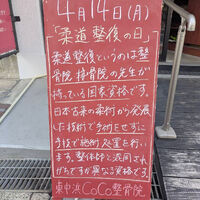 4月14日(月)
「柔道整復の日」
柔道整復というのは整
骨院 接骨院の先生が
持っている国家資格です。
日本古来の柔術から発展
した技術で手術をせずに
手技で施術 処置を行い
ます。整体師と混同され
がちですが異なる資格です。
東中浜CoCo整骨院